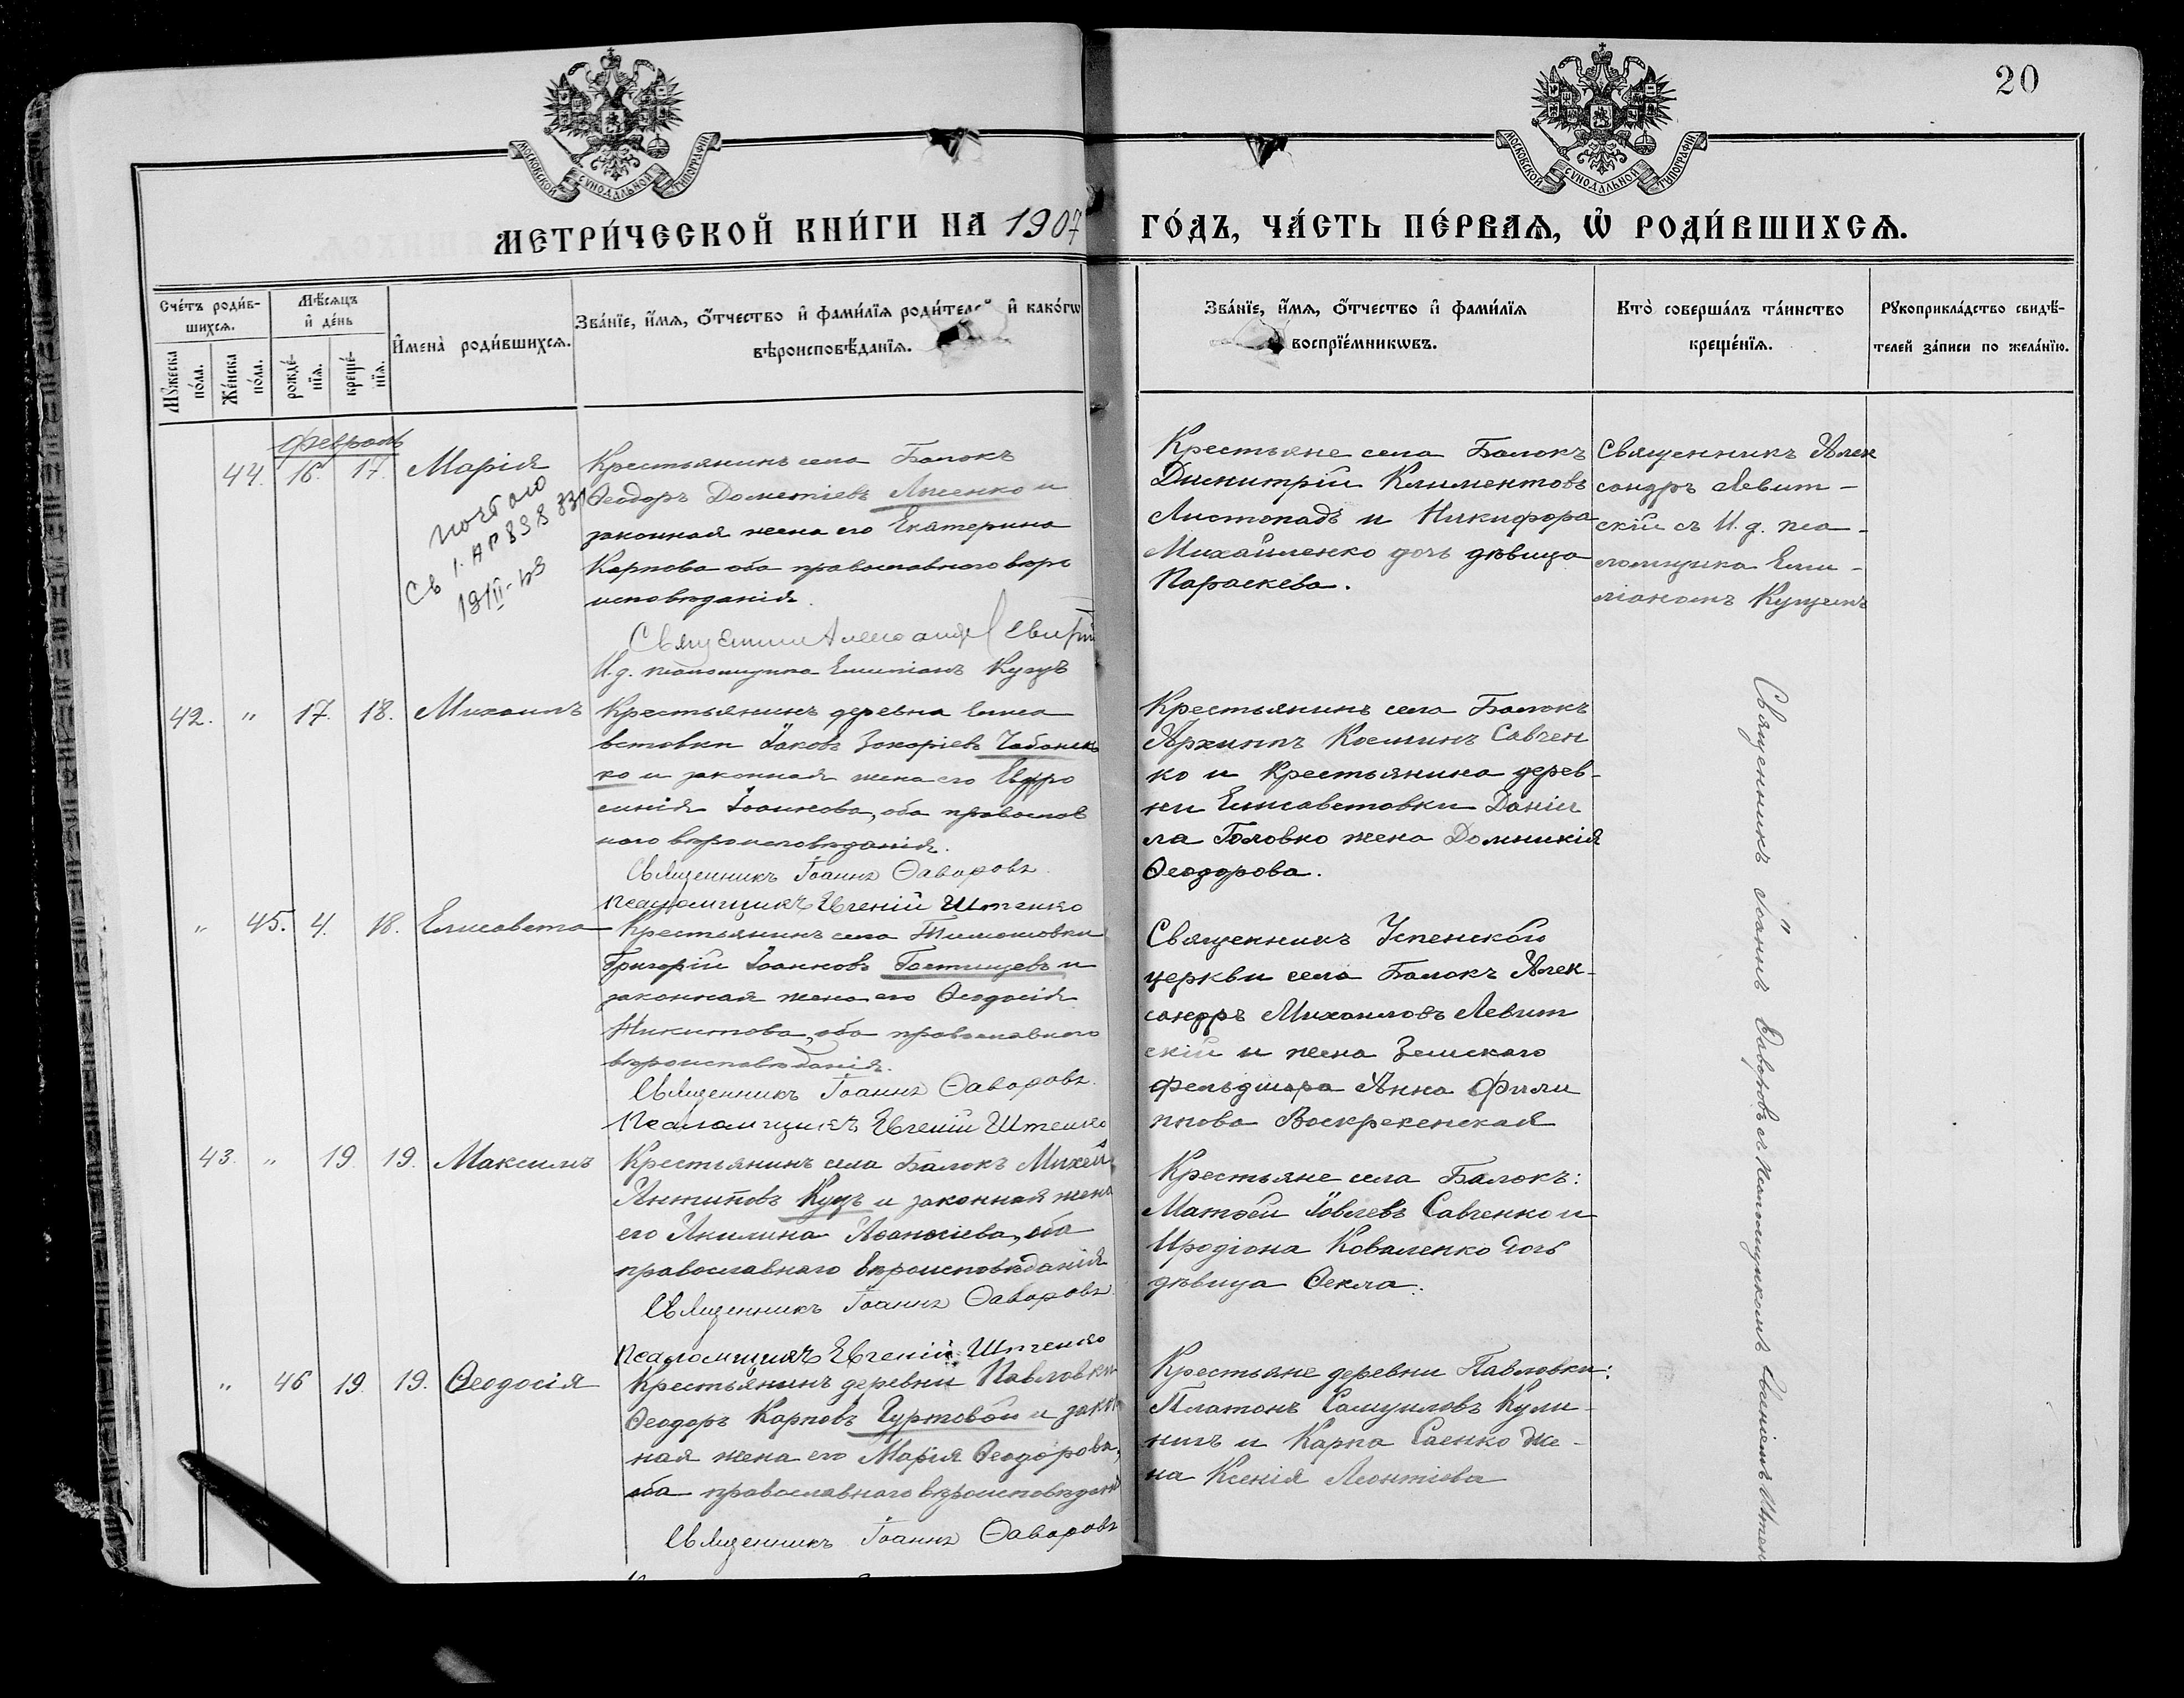 20
МОСКОВСКОЙ СѴНОДАЛЬНОЙ ТѴПОГРАФІИ
МОСКОВСКОЙ СѴНОДАЛЬНОЙ ТѴПОГРАФІИ
МЕТРИ́ЧЕСКОЙ КНИ́ГИ НА 1907 ГО́ДЪ, ЧА́СТЬ ПЕ́РВАѦ, Ѡ҆ РОДИ́ВШИХСѦ.
Сче́тъ роди́в-
шихсѧ.
Мѣ́сѧцъ
и҆ де́нь
Мꙋ́жеска
по́ла.
Же́нска
по́ла.
рожде́-
нїѧ.
креще́-
нїѧ.
И҆мена̀ роди́вшихсѧ.
Зва́нїе, и҆́мѧ, ѻ҆́тчество и҆ фами́лїѧ роди́телей и҆ како́гѡ
вѣроисповѣ́данїѧ.
Зва́нїе, и҆́мѧ, ѻ҆́тчество и҆ фами́лїѧ
воспрїе́мникѡвъ.
Кто̀ соверша́лъ та́инство
креще́нїѧ.
Рꙋкоприкла́дство свидѣ́-
телей за́писи по жела́нїю.
Февраль
44. 16. 17. Марія
Крестьянинъ села Балокъ
Ѳеодоръ Дометіевъ Лысенко и
законная жена его Екатерина
Карпова оба православнаго вѣро
исповѣданія.
И.д. псаломщика Емиліанъ Куцъ
Крестьяне села Балокъ
Димитрій Климентовъ
Листопадъ и Никифора
Михайленко дочь дѣвица
Параскева.
Священникъ Алек
сандръ Левит-
скій съ И.д. пса-
ломщика Еми-
ліаномъ Куцемъ
42. " 17. 18. Михаилъ
Крестьянинъ деревни Елиса
ветовки Іаковъ Захаріевъ Чабанен
ко и законная жена его Евфро
синія Іоаннова, оба православ
наго вѣроисповѣданія.
Священникъ Іоаннъ Ѳаворовъ
Псаломщикъ Евгеній Штенко
Крестьянинъ села Балокъ
Архиппъ Косминъ Савчен
ко и Крестьянина дерев-
ни Елисаветовки Даніи
ла Головко жена Домникія
Ѳеодорова.
" 45. 4. 18. Елисавета
Крестьянинъ села Тимошовки
Григорій Іоанновъ Гостищевъ и
законная жена его Ѳеодосія
Никитова, оба православнаго
вѣроисповѣданія.
Священникъ Іоаннъ Ѳаворовъ.
Псаломщикъ Евгеній Штенко
Священникъ Успенской
церкви села Балокъ Алек-
сандръ Михаиловъ Левит
скій и жена Земскаго
фельдшера Анна Фили
ппова Воскресенская
43. " 19 19. Максимъ
Крестьянинъ села Балокъ Михей
Антиповъ Куцъ и законная жена
его Акилина Аѳанасіева, оба
православнаго вѣроисповѣданія
Священникъ Іоаннъ Ѳаворовъ
Псаломщикъ Евгеній Штенко
Крестьяне села Балокъ:
Матѳей Іовлевъ Савченко и
Иродіона Коваленко дочь
дѣвица Ѳекла.
" 46 19. 19. Ѳеодосія
Крестьянинъ деревни Павловки
Ѳеодоръ Карповъ Гуртовой и закон
ная жена его Марія Ѳеодорова,
оба православнаго вѣроисповѣданія
Священникъ Іоаннъ Ѳаворовъ
Крестьяне деревни Павловки:
Платонъ Самуиловъ Кули-
ничъ и Карпа Саенко же-
на Ксенія Леонтіева
Священникъ Іоаннъ Ѳаворовъ съ Псаломщикомъ Евгеніемъ Штен